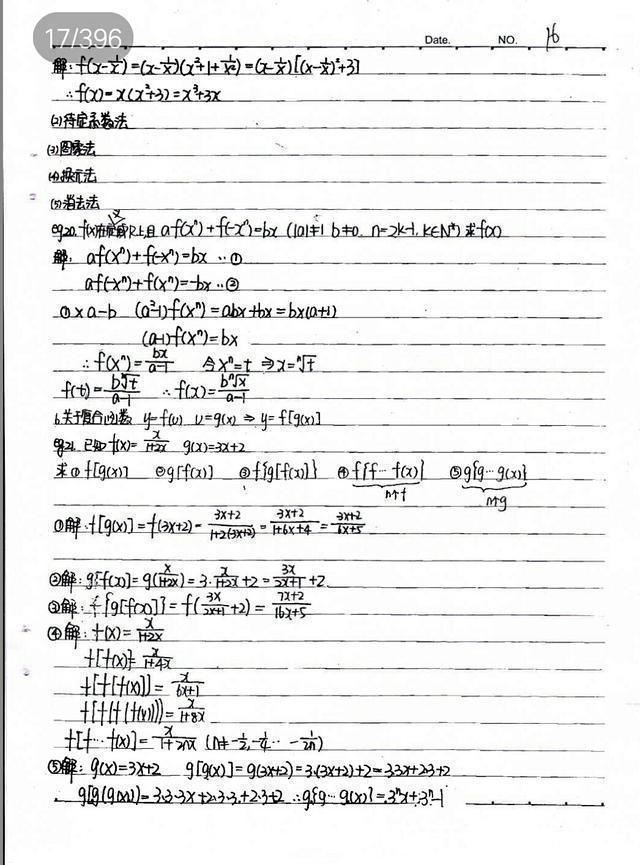 17/396
Date. NO. 16
解: f(x-1/x)=(x-1/x)(x²+1+1/x²)=(x-1/x)[(x-1/x)²+3]
∴f(x)=x(x²+3)=x³+3x
(2)待定系数法
(3)图象法
(4)换元法
(5)消去法
eg20. f(x)在 R上且 af(xⁿ)+f(-xⁿ)=bx (|a|≠1 b≠0. n=2k-1, k∈N*) 求f(x)
解: af(xⁿ)+f(-xⁿ)=bx ··①
af(-xⁿ)+f(xⁿ)=-bx ··②
①×a-b (a²-1)f(xⁿ)=abx+bx=bx(a+1)
(a-1)f(xⁿ)=bx
∴f(xⁿ)=bx/a-1 令xⁿ=t ⇒x=ⁿ√t
f(t)=bⁿ√t/a-1 ∴f(x)=bⁿ√x/a-1
6.关于复合函数 y=f(u) u=g(x) ⇒ y=f[g(x)]
eg21. 已知f(x)=x/1+2x g(x)=3x+2
求① f[g(x)] ②g[f(x)] ③f{g[f(x)]} ④f{f···f(x)} ⑤g{g···g(x)}
n个f n个g
①解: f[g(x)]=f(3x+2)=3x+2/1+2(3x+2)=3x+2/1+6x+4=3x+2/6x+5
②解: g[f(x)]=g(x/1+2x)=3·x/1+2x+2=3x/2x+1+2.
③解: f{g[f(x)]}=f(3x/2x+1+2)=7x+2/16x+5
④解: f(x)=x/1+2x
f[f(x)]=x/1+4x
f[f[f(x)]]=x/6x+1
f[f(f(f(x)))]=x/1+8x
f[f···f(x)]=x/1+2nx (n≠-1/2,-1/4··-1/2n)
⑤解: g(x)=3x+2 g[g(x)]=g(3x+2)=3·(3x+2)+2=3·3x+2·3+2
g[g(g(x))]=3·3·3x+2·3·3+2·3+2 ∴g{g···g(x)}=3ⁿx+3ⁿ-1